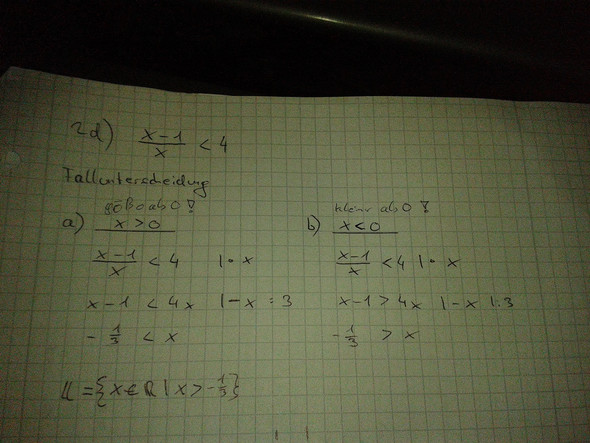 2d) (x-1)/x < 4
Fallunterscheidung
größer als 0 !
a) x > 0
(x-1)/x < 4 | · x
x - 1 < 4x | - x : 3
- 1/3 < x
kleiner als 0 !
b) x < 0
(x-1)/x < 4 | · x
x - 1 > 4x | - x | : 3
- 1/3 > x
𝕃 = {x ∈ ℝ | x > - 1/3}